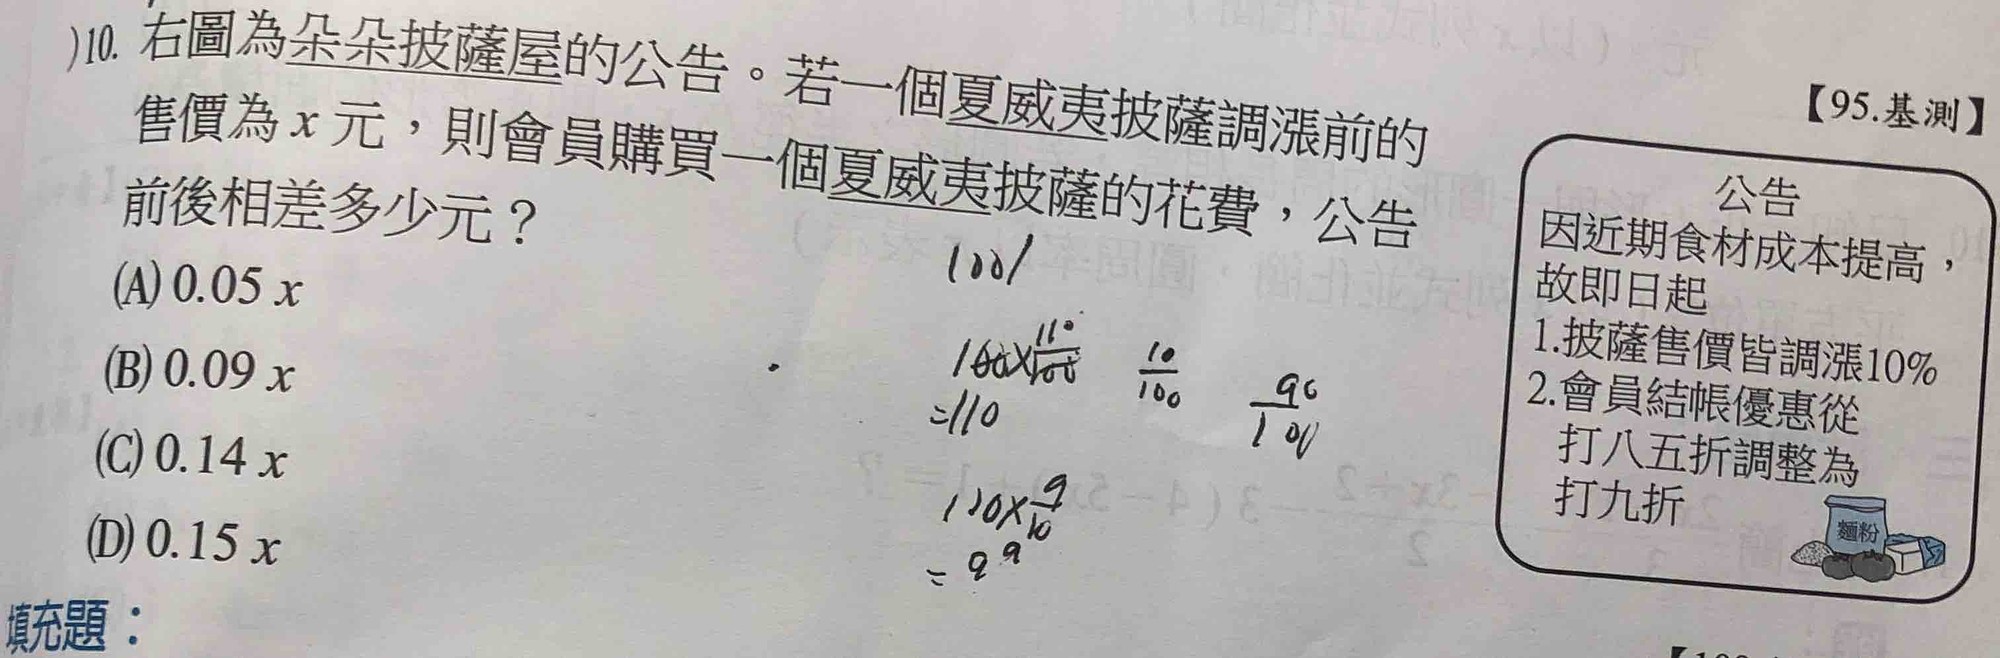 )10. 右圖為朵朵披薩屋的公告。若一個夏威夷披薩調漲前的
售價為 x 元，則會員購買一個夏威夷披薩的花費，公告
前後相差多少元？
(A) 0.05 x
(B) 0.09 x
(C) 0.14 x
(D) 0.15 x
【95.基測】
公告
因近期食材成本提高，
故即日起
1.披薩售價皆調漲10%
2.會員結帳優惠從
打八五折調整為
打九折
麵粉
100/
100×110/100
=110
10/100
90/100
110×9/10
=99
填充題：